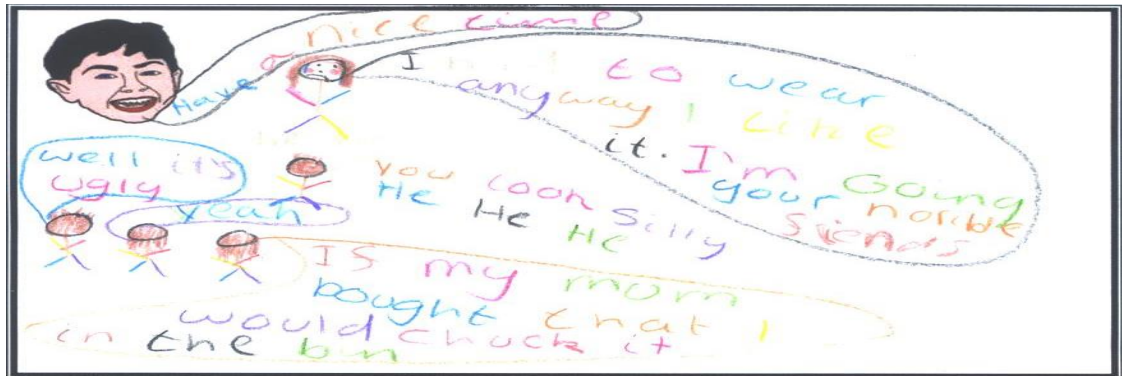 Have a nice time
I had to wear
anyway I like
it. I'm Going
your horible
fiends
well it's
ugly
yeah
you look silly
He He He
IS my mum
bought that I
would chuck it
in the bin